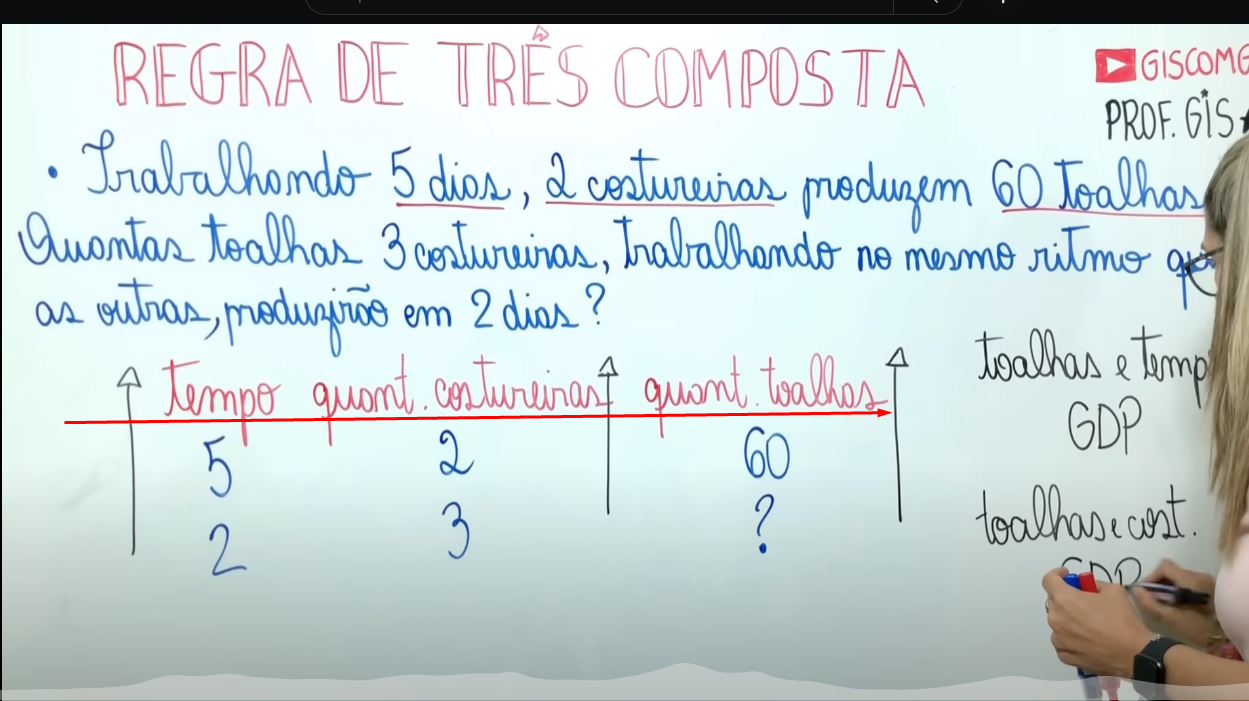 REGRA DE TRÊS COMPOSTA
GISCOMG
PROF. GIS
• Trabalhando 5 dias, 2 costureiras produzem 60 toalhas
Quantas toalhas 3 costureiras, trabalhando no mesmo ritmo
as outras, produzirão em 2 dias?
tempo quant. costureiras quant. toalhas
5 2 60
2 3 ?
toalhas e temp
GDP
toalhas e cost.
GDP